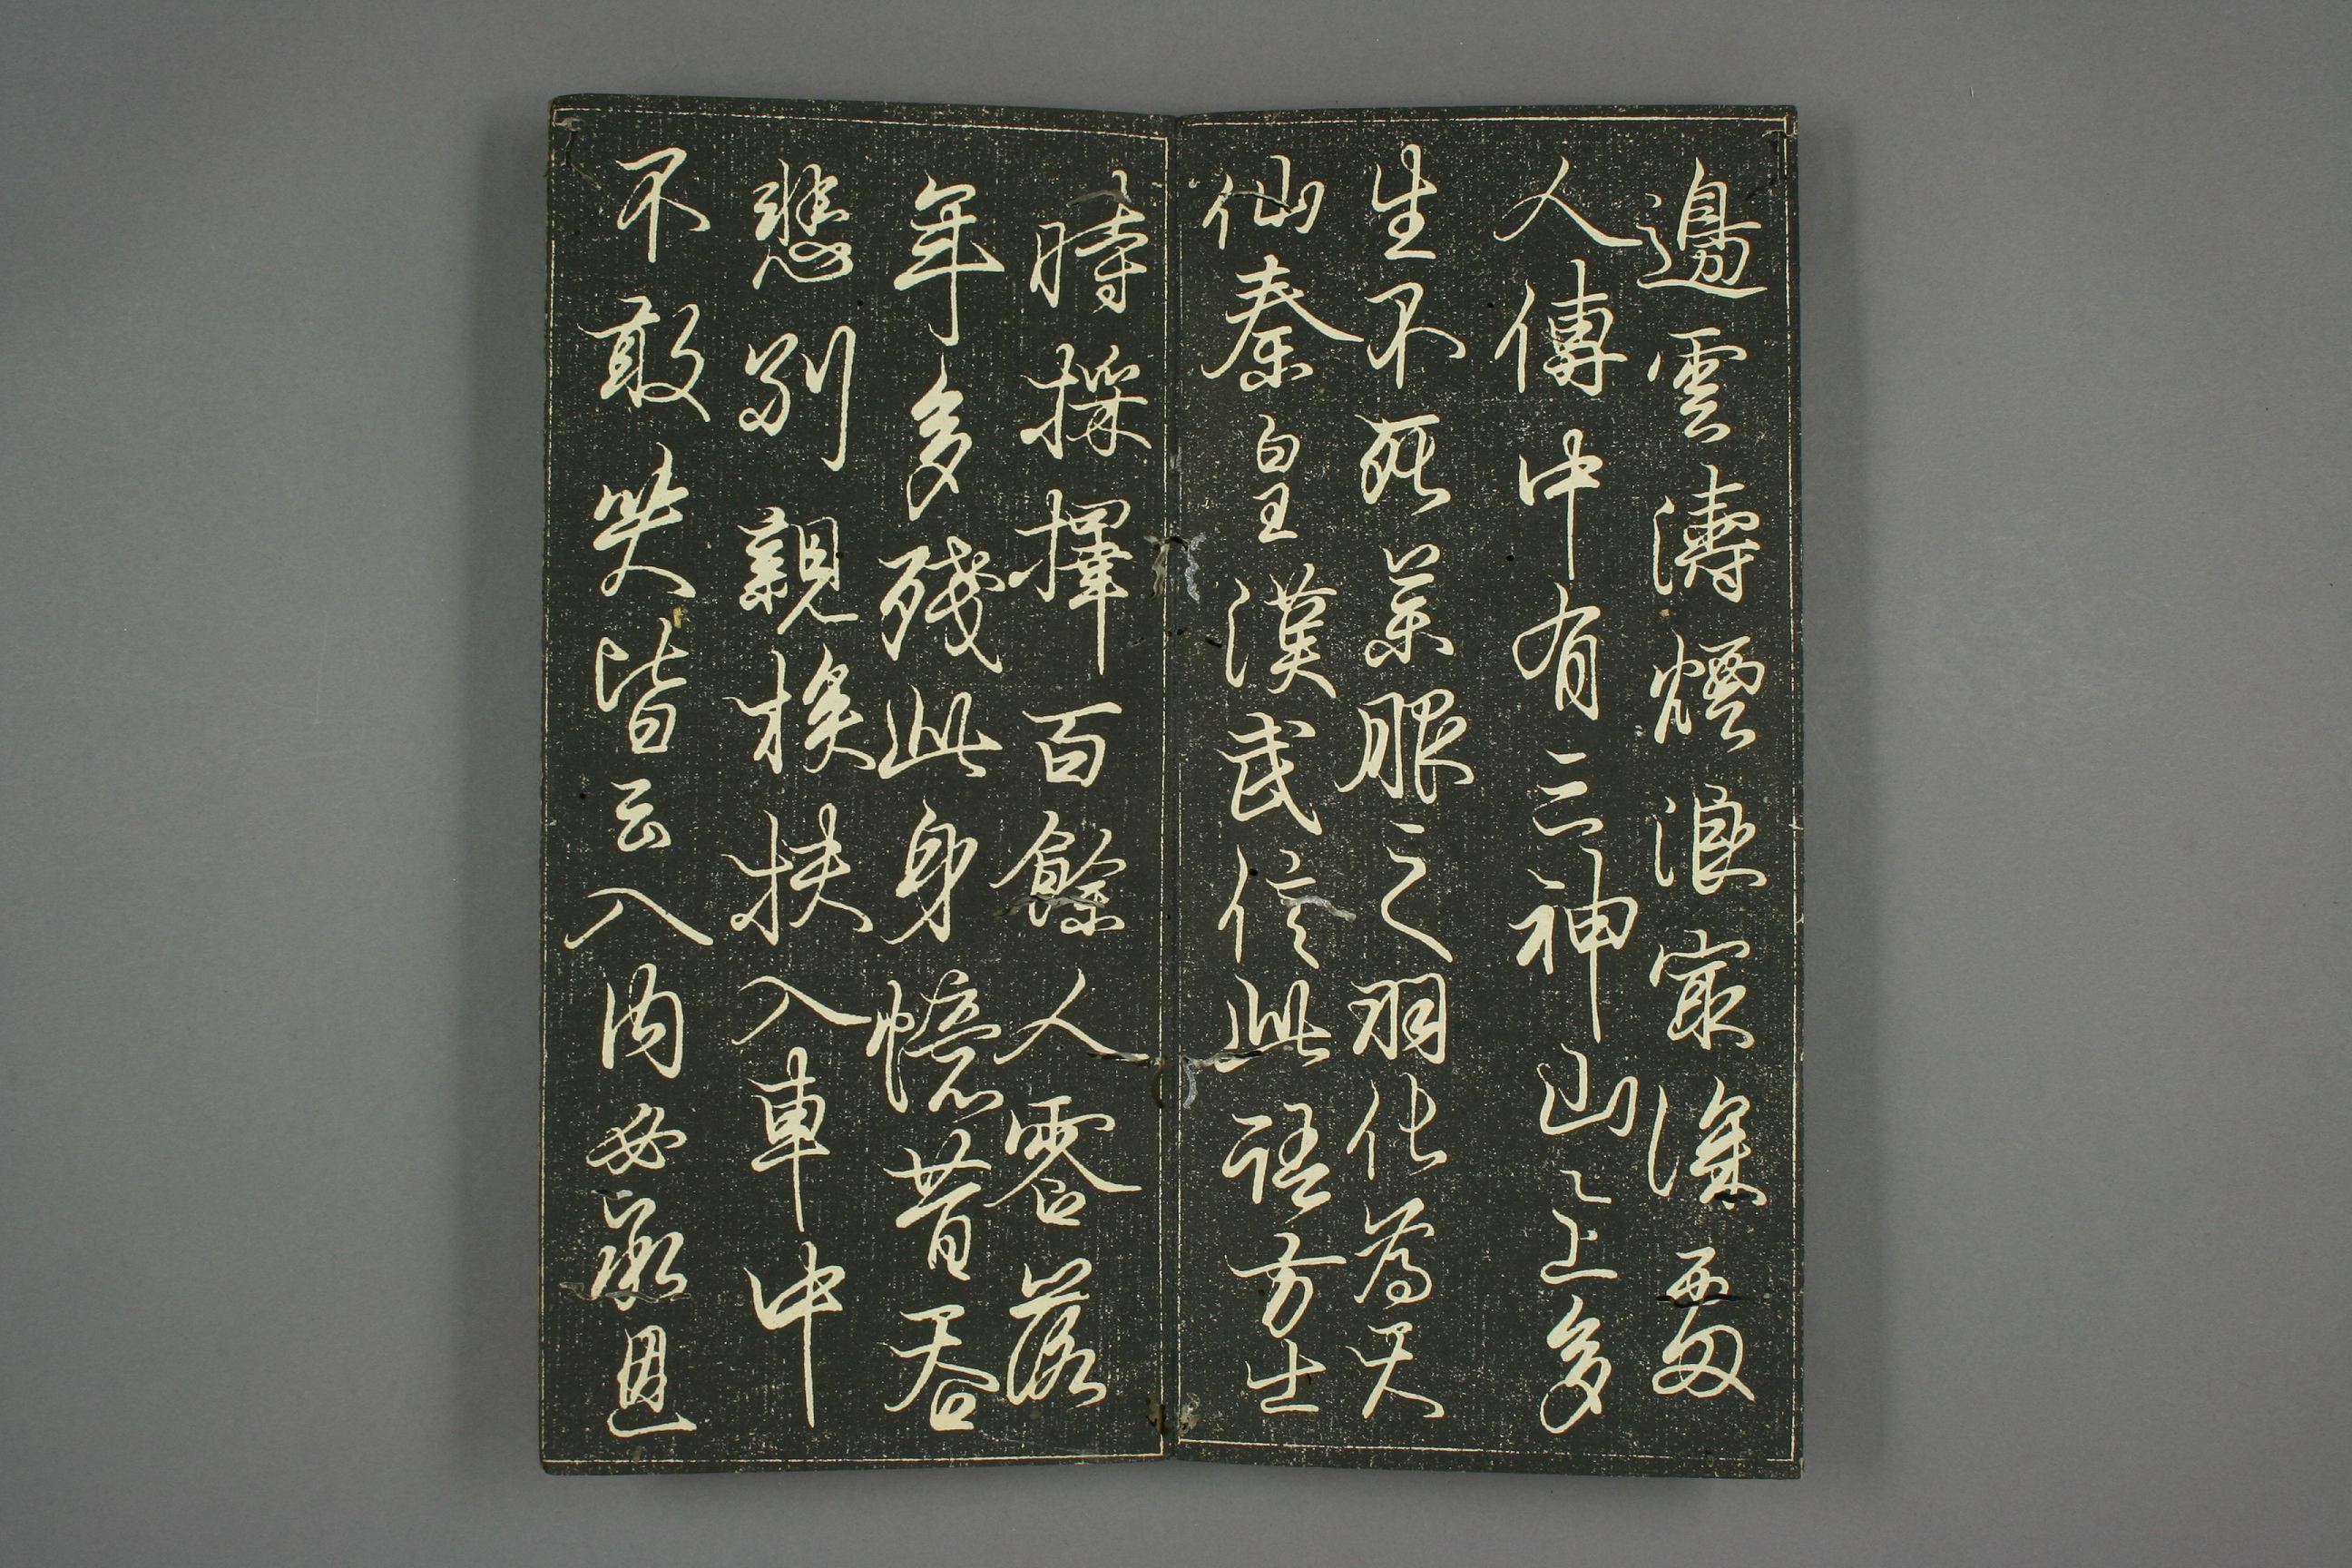 邊雲濤煙浪最深處
人傳中有三神山々上多
生不死藥服之羽化為天
仙秦皇漢武信此語方士
時採擇百餘人零落
年多殘此身憶昔吞
悲別親族扶入車中
不敢哭皆云入內必承恩